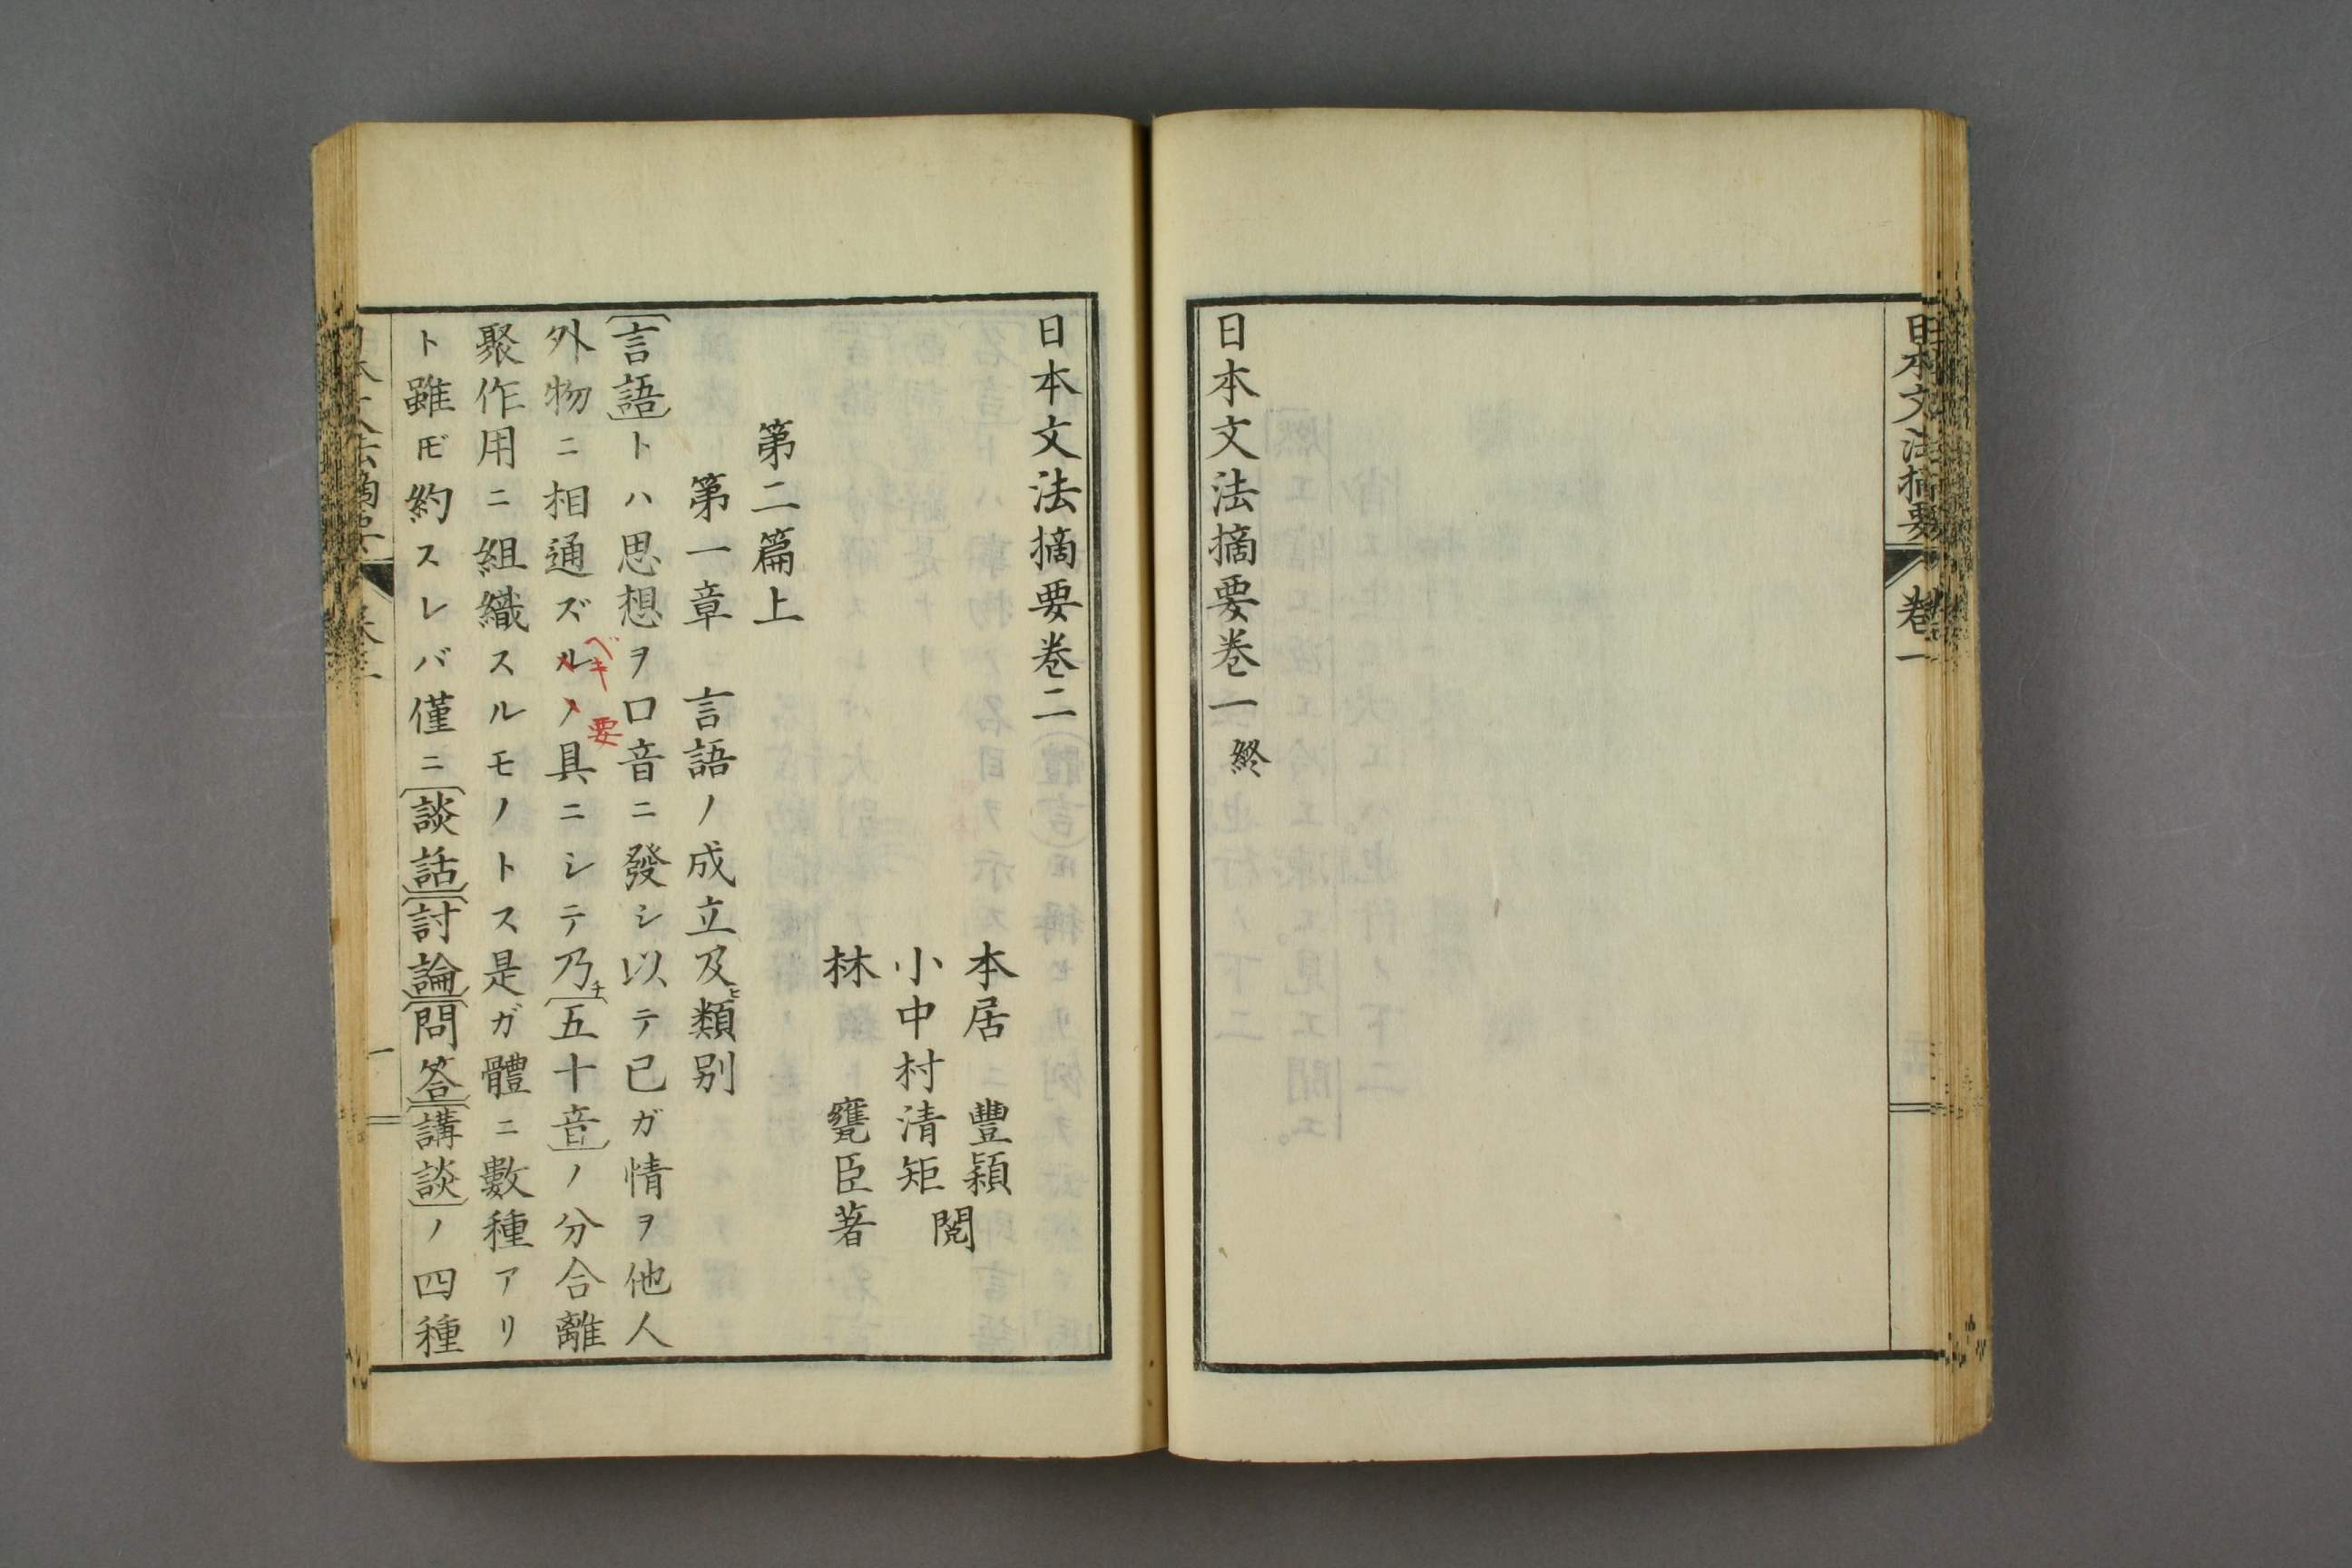 日本文法摘要 卷一
日本文法摘要卷一終
日本文法摘要卷二
本居豐穎
小中村清矩閲
林甕臣著
第二篇上
第一章 言語ノ成立及ヒ類别
〔言語〕トハ思想ヲ口音ニ發シ以テ已ガ情ヲ他人
外物ニ相通ズルノ具ニシテ乃チ〔五十音〕ノ分合離
ベキ 要
聚作用ニ組織スルモノトス是ガ體ニ數種アリ
ト雖𪜈約スレバ僅ニ〔談話〕〔討論〕〔問答〕〔講談〕ノ四種
一